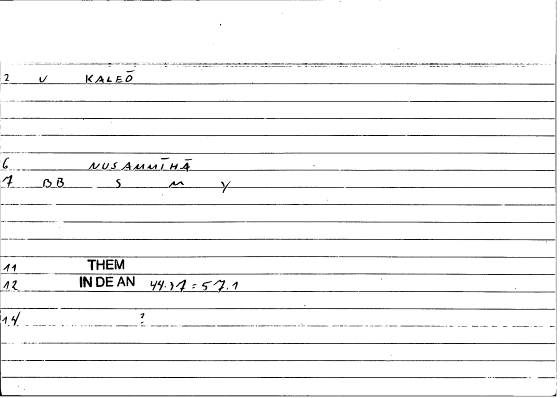 2 V KALEŌ
6 NUSAMMĪHĀ
7 BB S M Y
11 THEM
12 IN DE AN 44.37 = 57.1
14 ?